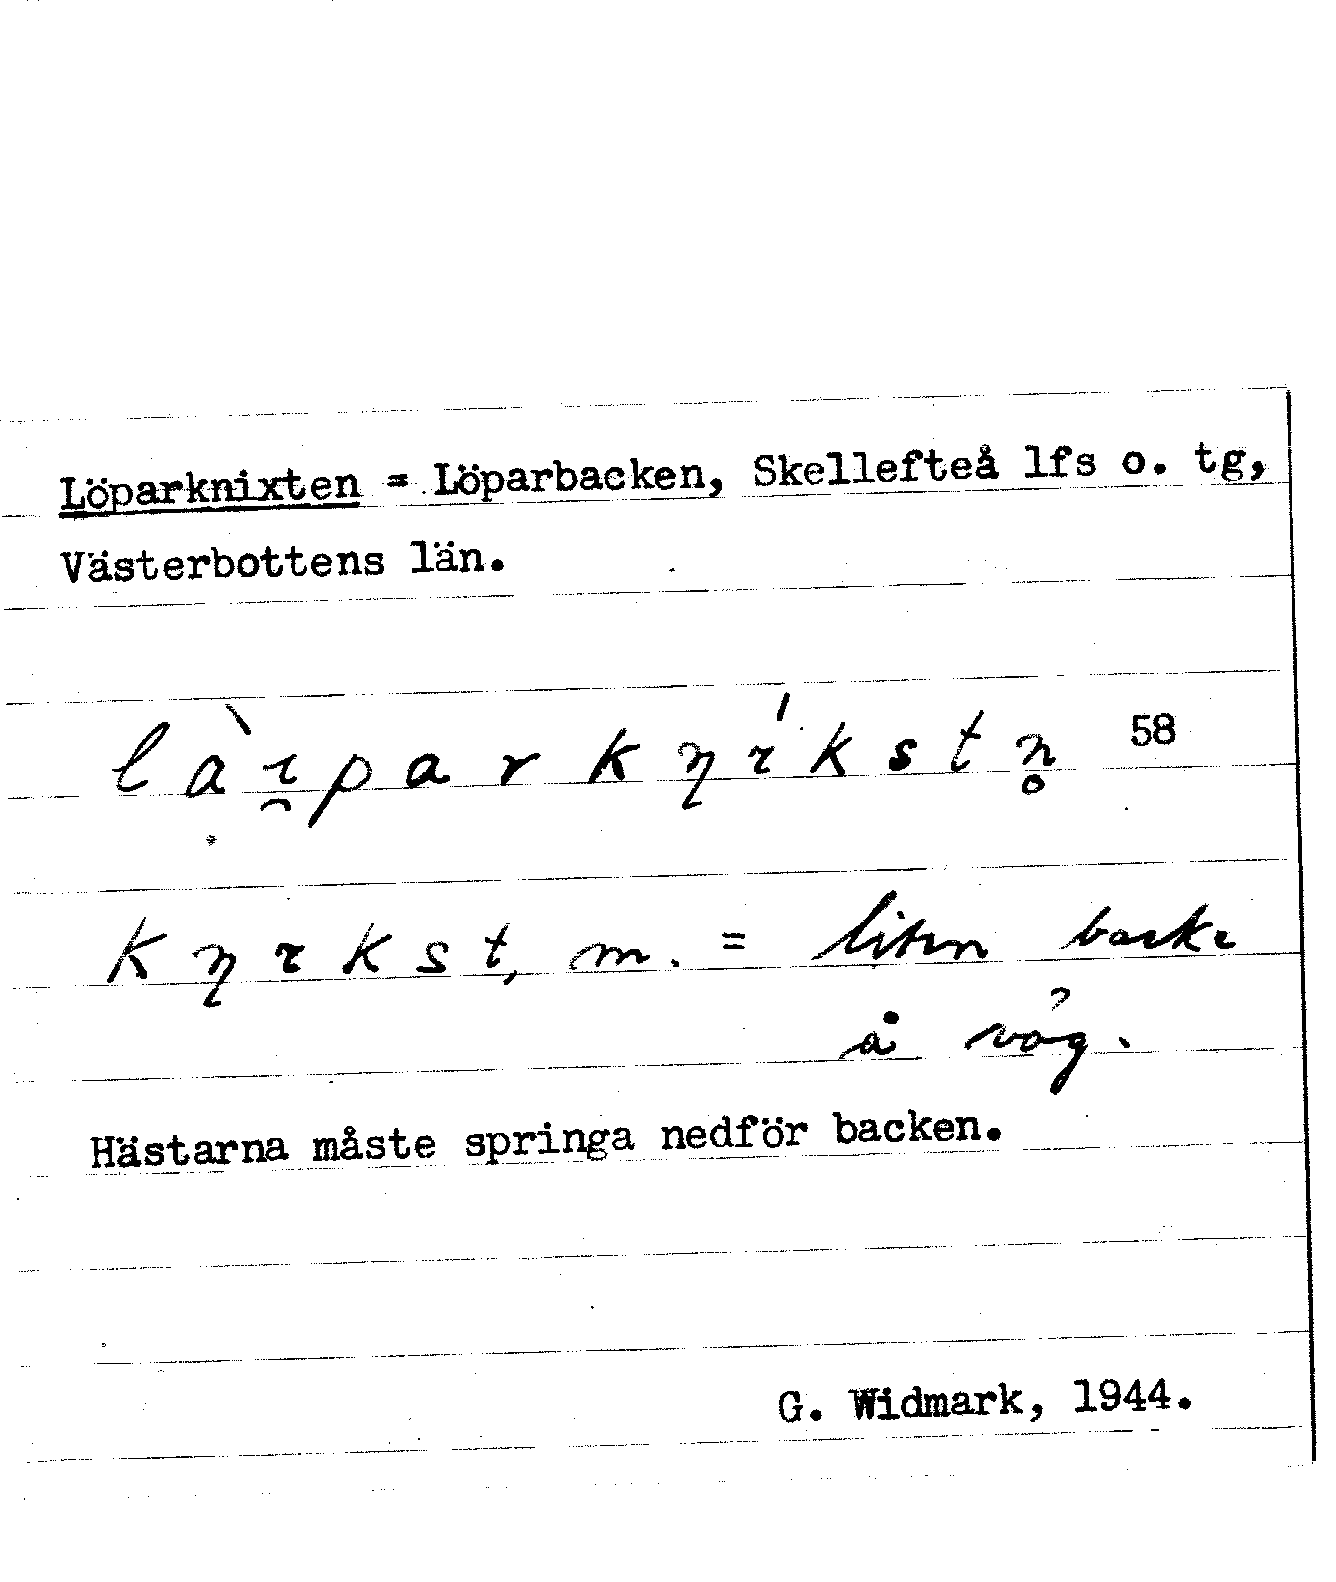 Löparknixten = Löparbacken, Skellefteå lfs o. tg,
Västerbottens län.
làɪ̯parkŋɪ́kstn̥ 58
kŋɪkst, m. = liten backe
å väg.
Hästarna måste springa nedför backen.
G. Widmark, 1944.